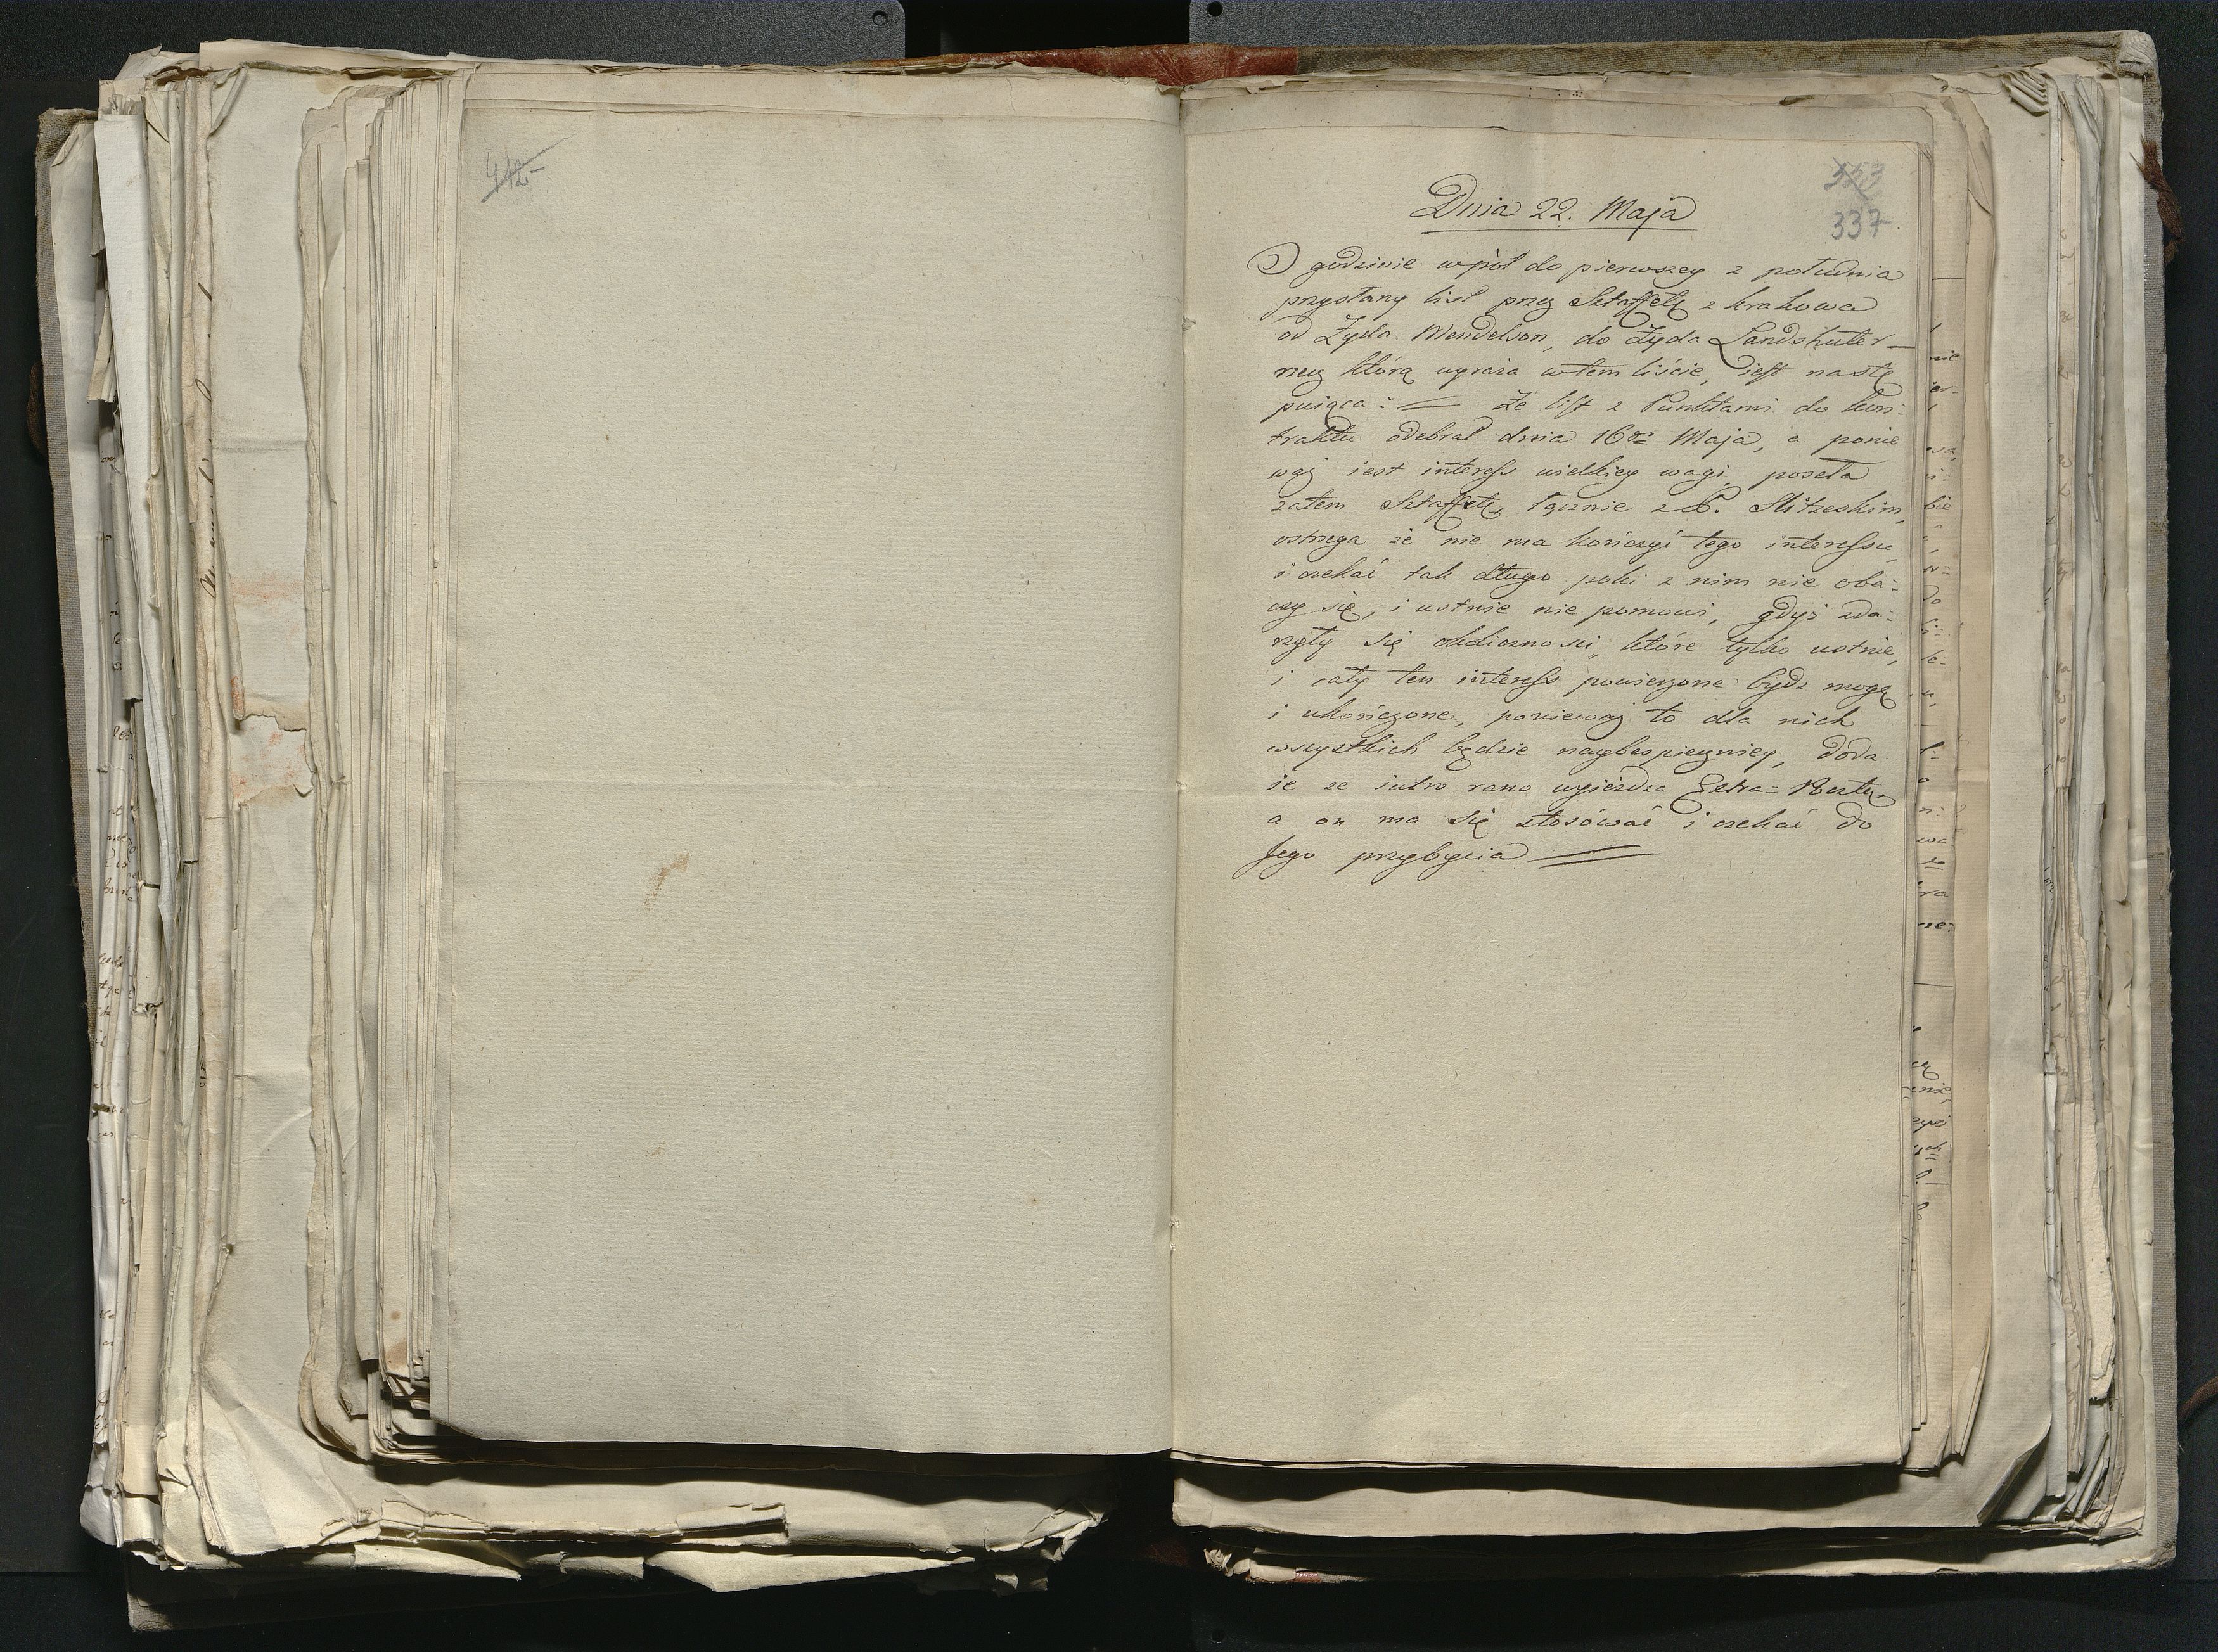 412
553
337
Dnia 22. Maja
O godzinie wpół do pierwszey z południa
przysłany list przez Sztaffetę z krakowa
od Żyda Mendelson, do Żyda Landshuter
rzecz którą wyraża wtem liście, iest nastę
puiąca: = Że list z Punktami do kon:
traktu odebrał dnia 16go Maja, a ponie
waż iest interess wielkiey wagi, poseła
zatem Sztaffetę, łącznie z P.
ostrzega że nie ma kończyć tego interessu,
i czekać tak długo poki z nim nie oba:
czy się, i ustnie nie pomowi, gdyż zda:
rzyły się okoliczności, które tylko ustnie,
i cały ten interess powierzone bydź mogą
i ukończone, ponieważ to dla nich
wszystkich będzie naybespieczniey, doda
ie ze iutro rano wyieżdża Extra=Pocztą,
a on ma się stosówać i czekać do
Jego przybycia =